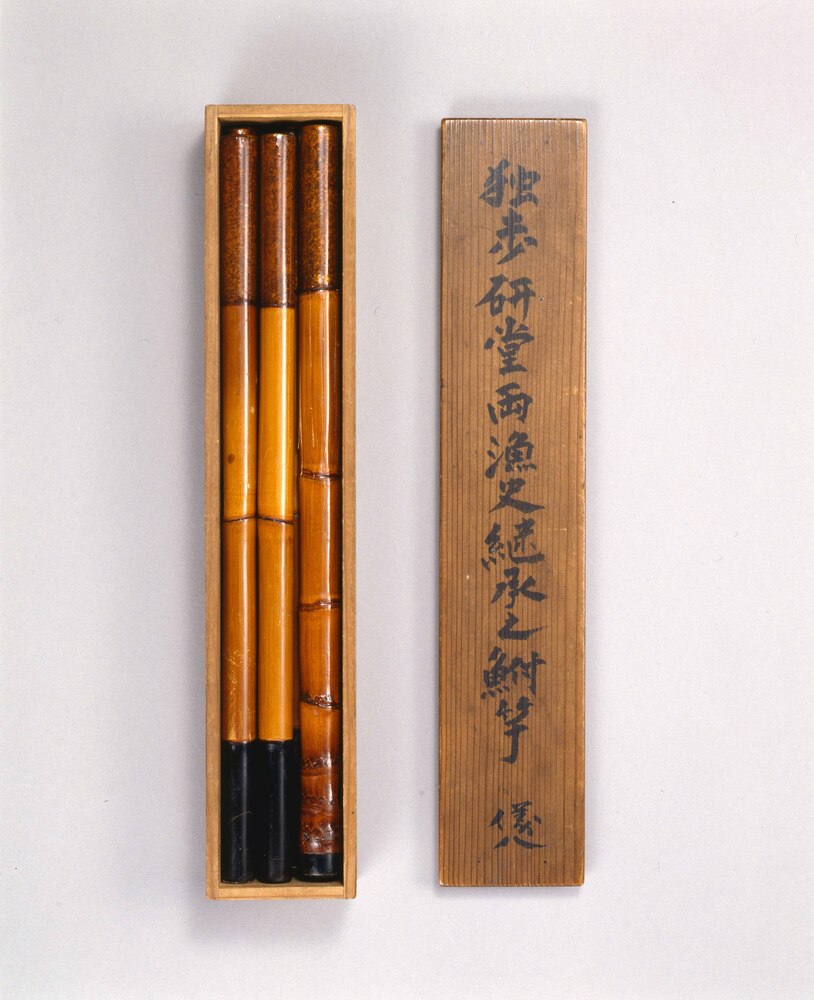 独歩研堂両漁史継承之鮒竿　儀八